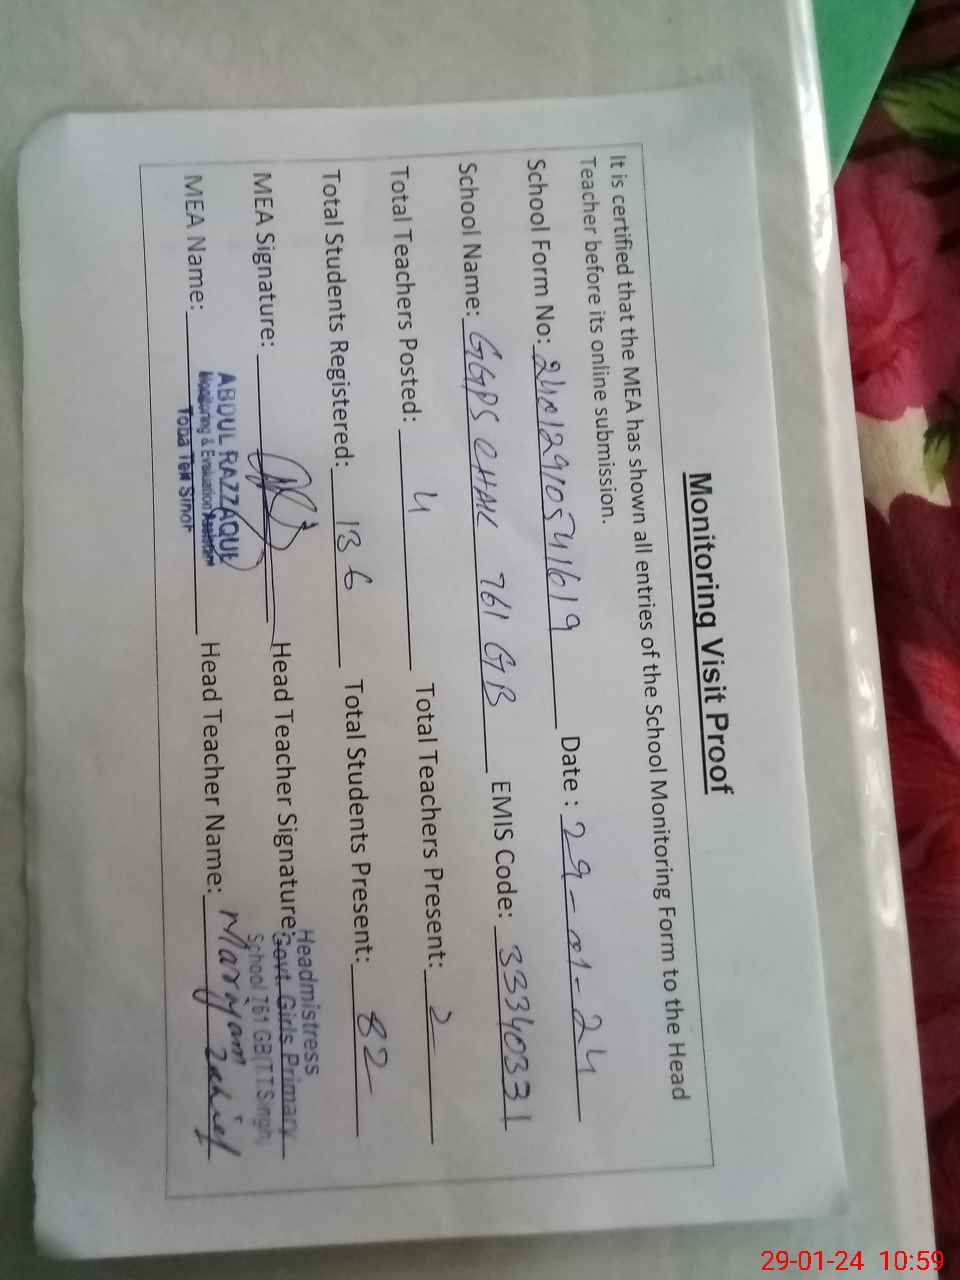 Monitoring Visit Proof
It is certified that the MEA has shown all entries of the School Monitoring Form to the Head
Teacher before its online submission.
School Form No: 24012910541619 Date : 29-01-24
School Name: GGPS CHAK 761 GB EMIS Code: 33340331
Total Teachers Posted: 4 Total Teachers Present: 2
Total Students Registered: 136 Total Students Present: 82
MEA Signature: Head Teacher Signature:
Headmistress
Govt. Girls Primary
School 761 GB (T.T.Singh)
MEA Name: Head Teacher Name: Maryam
ABDUL RAZZAQUE
Monitoring & Evaluation Assistant
Toba Tek Singh
29-01-24 10:59